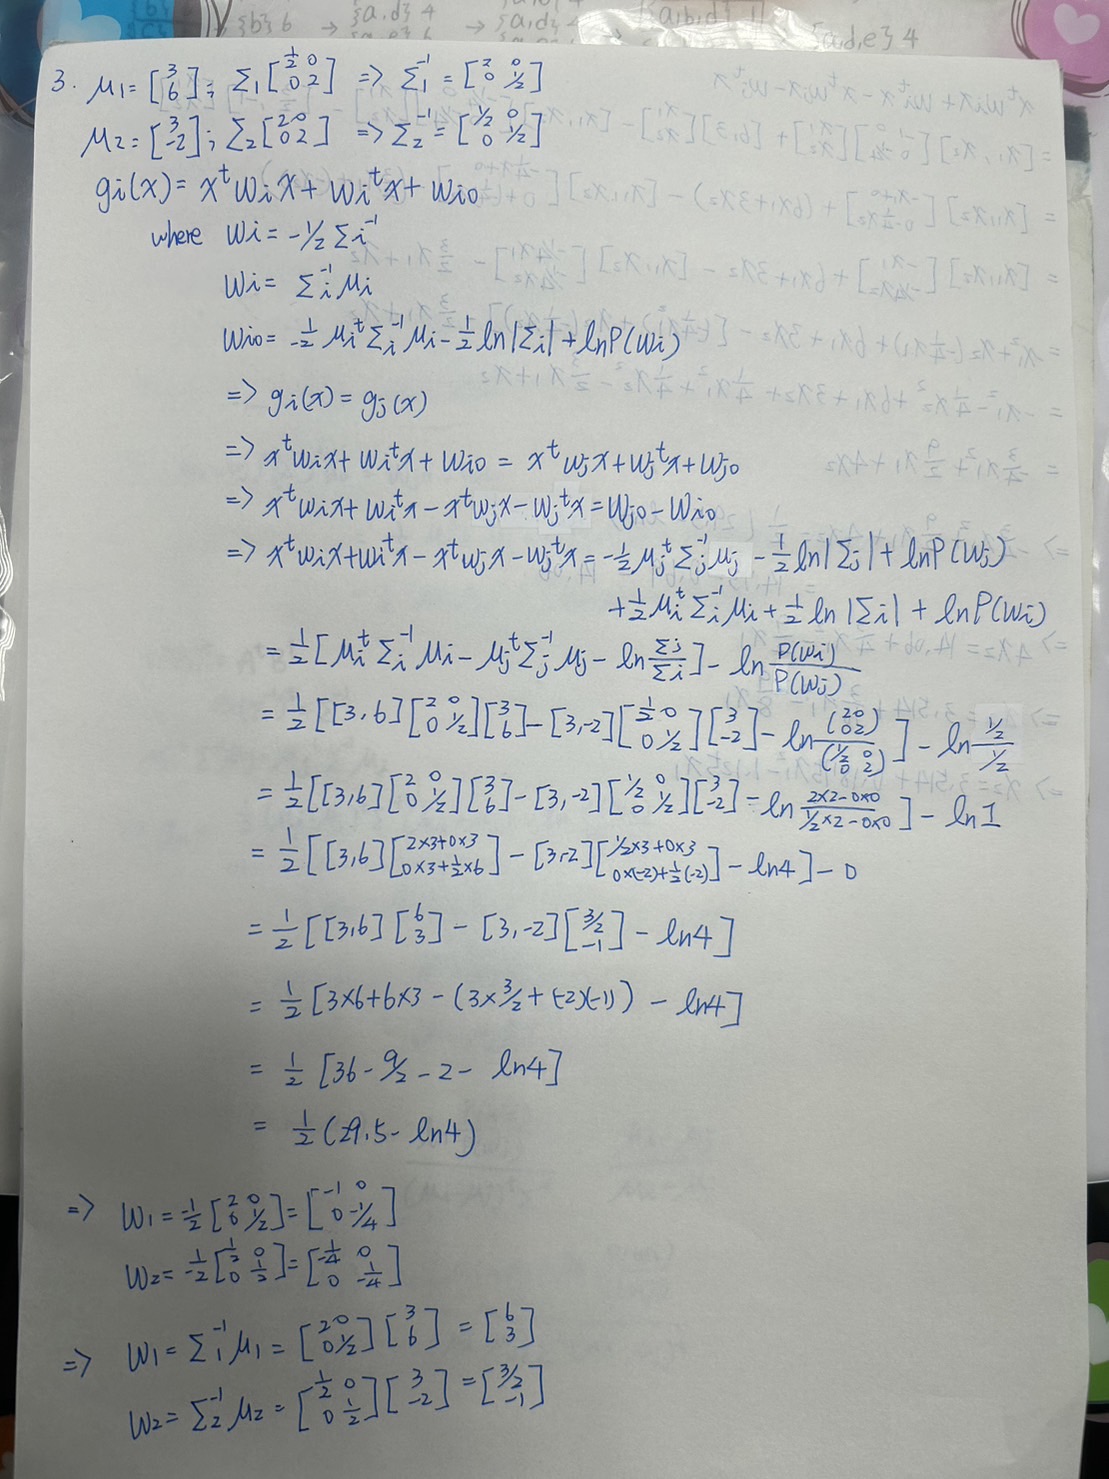 {b} 6 {a,d} 4 → {a,d} 4 {a,b,d} {a,d,e} 4
3. μ1 = [3 6] ; Σ1 [1/2 0 0 2] => Σ1^-1 = [2 0 0 1/2]
μ2 = [3 -2] ; Σ2 [2 0 0 2] => Σ2^-1 = [1/2 0 0 1/2]
gi(x) = x^t wi x + wi^t x + wi0
where Wi = -1/2 Σi^-1
Wi = Σi^-1 μi
Wi0 = -1/2 μi^t Σi^-1 μi - 1/2 ln|Σi| + lnP(wi)
=> gi(x) = gj(x)
=> x^t wi x + wi^t x + wi0 = x^t wj x + wj^t x + wj0
=> x^t wi x + wi^t x - x^t wj x - wj^t x = wj0 - wi0
=> x^t wi x + wi^t x - x^t wj x - wj^t x = -1/2 μj^t Σj^-1 μj - 1/2 ln|Σj| + lnP(wj)
+ 1/2 μi^t Σi^-1 μi + 1/2 ln|Σi| + lnP(wi)
= 1/2 [μi^t Σi^-1 μi - μj^t Σj^-1 μj - ln Σj/Σi] - ln P(wi)/P(wj)
= 1/2 [[3,6] [2 0 0 1/2] [3 6] - [3,-2] [1/2 0 0 1/2] [3 -2] - ln (2 0 0 2)/(1/2 0 0 2)] - ln 1/2 / 1/2
= 1/2 [[3,6] [2 0 0 1/2] [3 6] - [3,-2] [1/2 0 0 1/2] [3 -2] = ln (2×2-0×0)/(1/2×2-0×0)] - ln1
= 1/2 [[3,6] [2×3+0×3 0×3+1/2×6] - [3,-2] [1/2×3+0×3 0×(-2)+1/2(-2)] - ln4] - 0
= 1/2 [[3,6] [6 3] - [3,-2] [3/2 -1] - ln4]
= 1/2 [3×6+6×3 - (3×3/2 + (-2)(-1)) - ln4]
= 1/2 [36 - 9/2 - 2 - ln4]
= 1/2 (29.5 - ln4)
=> W1 = -1/2 [2 0 0 1/2] = [-1 0 0 -1/4]
W2 = -1/2 [1/2 0 0 1/2] = [-1/4 0 0 -1/4]
=> W1 = Σ1^-1 μ1 = [2 0 0 1/2] [3 6] = [6 3]
W2 = Σ2^-1 μ2 = [1/2 0 0 1/2] [3 -2] = [3/2 -1]